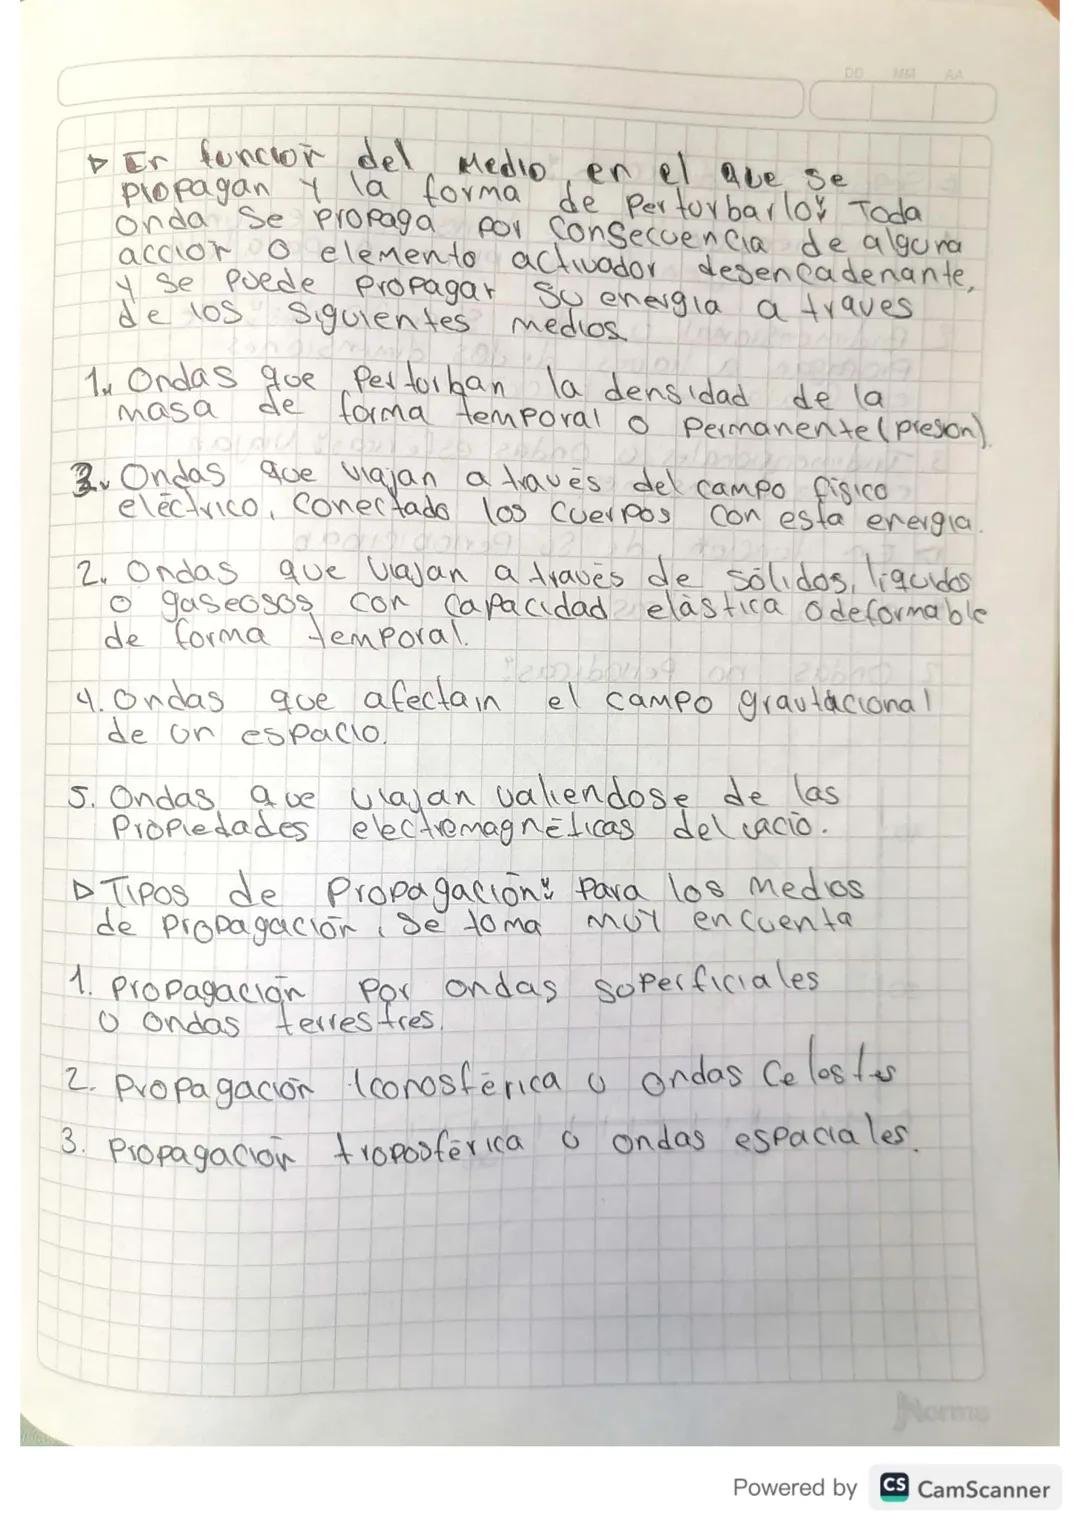 DD MM AA
▷ En función del Medio en el que se
propagan y la forma de perturbarlo: Toda
onda se propaga por consecuencia de alguna
acción o elemento activador desencadenante,
y se puede propagar su energia a traves
de los siguientes medios
1. Ondas que perturban la densidad de la
masa de forma temporal o permanente (presion).
3. Ondas que viajan a través del campo físico
eléctrico, conectado los cuerpos con esta energia.
2. Ondas que viajan a través de sólidos, liquidos
o gaseosos con capacidad elástica o deformable
de forma temporal.
4. Ondas que afectain el campo gravitacional
de un espacio.
5. Ondas que viajan valiendose de las
Propiedades electromagnéticas del vacio.
▷ Tipos de Propagación: Para los medios
de propagación, se toma muy en cuenta
1. Propagación por ondas superficiales
u ondas terrestres.
2. Propagación Iconosférica u ondas Celostes
3. Propagación troposférica o ondas espaciales.
Norma
Powered by CS CamScanner